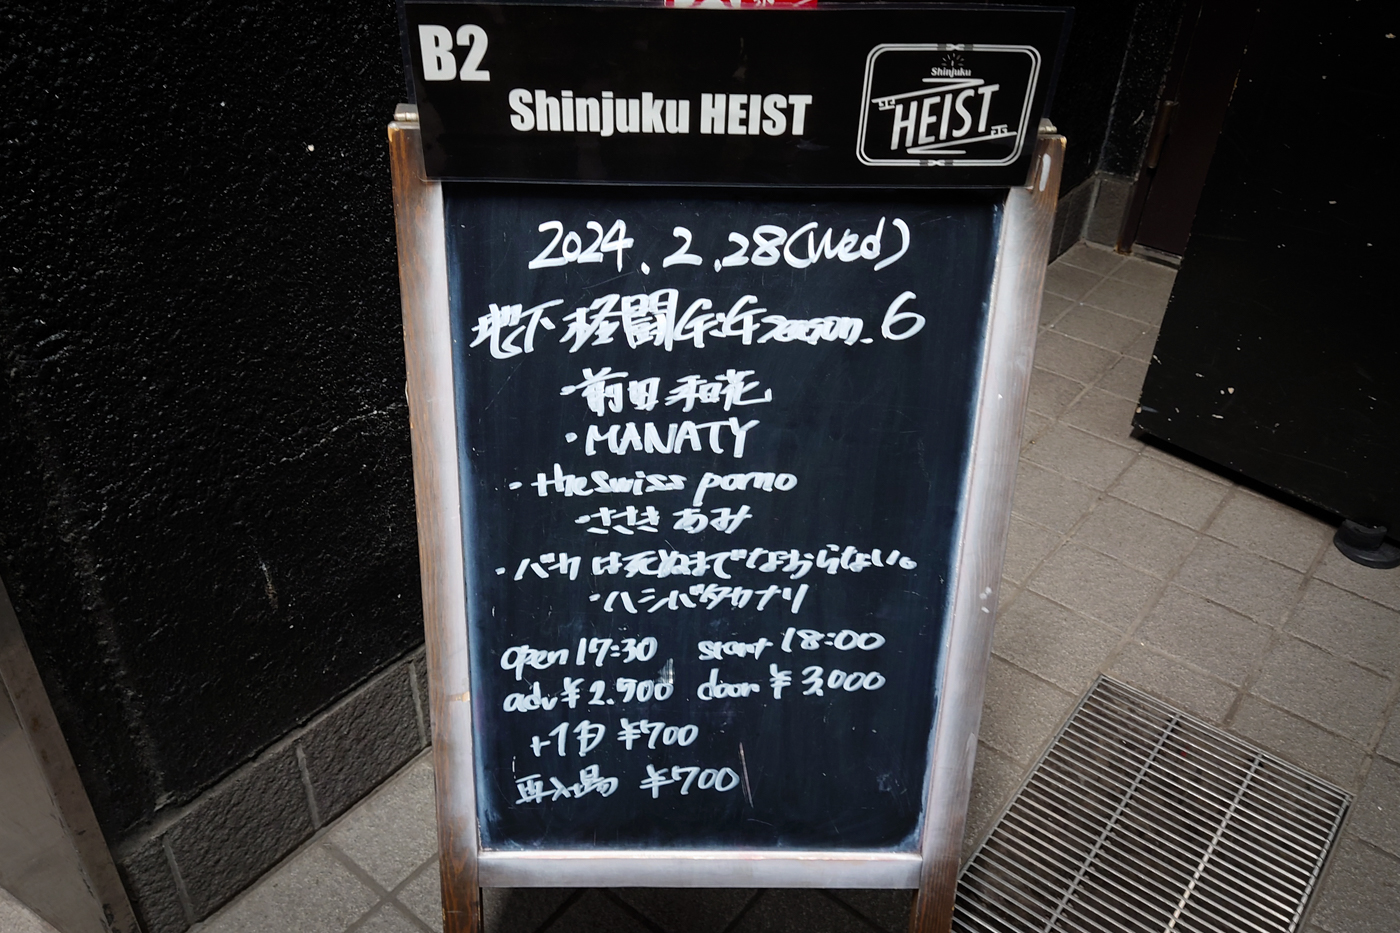 B2
Shinjuku HEIST
Shinjuku
HEIST
2024.2.28(Wed)
地下格闘 season.6
・前田和花
・MANATY
・the swiss porno
・ささきあみ
・バカは死ぬまでなおらない。
・ハシバタカナリ
open 17:30 start 18:00
adv ¥2.500 door ¥3.000
+1D ¥700
再入場 ¥700